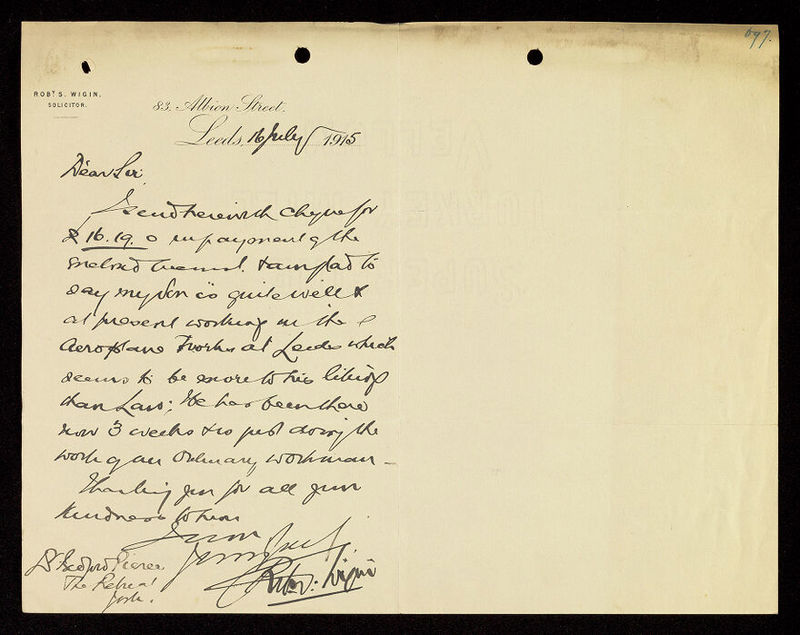 697.
ROBT. S. WIGIN,
SOLICITOR.
83, Albion Street,
Leeds, 16 July 1915
Dear Sir
I send herewith cheque for
£16.19.0 in payment of the
enclosed account. I am glad to
say my son is quite well &
at present working in the
Aeroplane works at Leeds which
seems to be more to his liking
than Law; He has been there
now 3 weeks & is just doing the
work of an Ordinary workman –
Thanking you for all your
kindness to him
I am
Yours truly
Robt. S. Wigin
Dr Bedford Pierce
The Retreat
York.